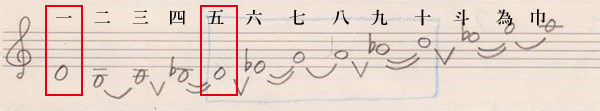 一 二 三 四 五 六 七 八 九 十 斗 為 巾